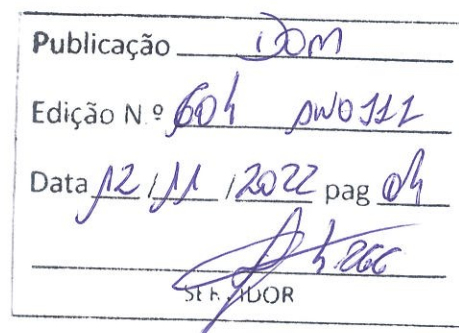 Publicação DOM
Edição N.º 604 ANO III
Data 12 / 11 / 2022 pag 04
SERVIDOR